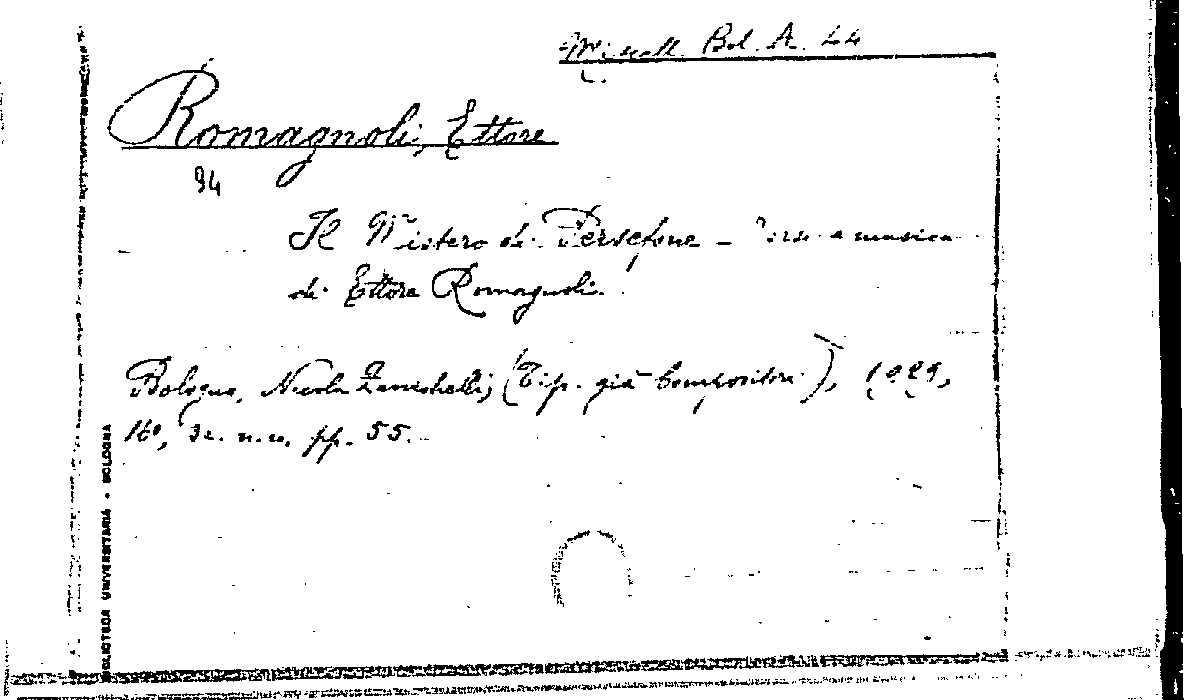 Miscell. Bol. A. 44
Romagnoli, Ettore
94
Il Mistero di Persefone - Versi e musica
di Ettore Romagnoli.
Bologna, Nicola Zanichelli, (Tip. già Compositori), 1929,
16°, pp. 55.
BIBLIOTECA UNIVERSITARIA - BOLOGNA